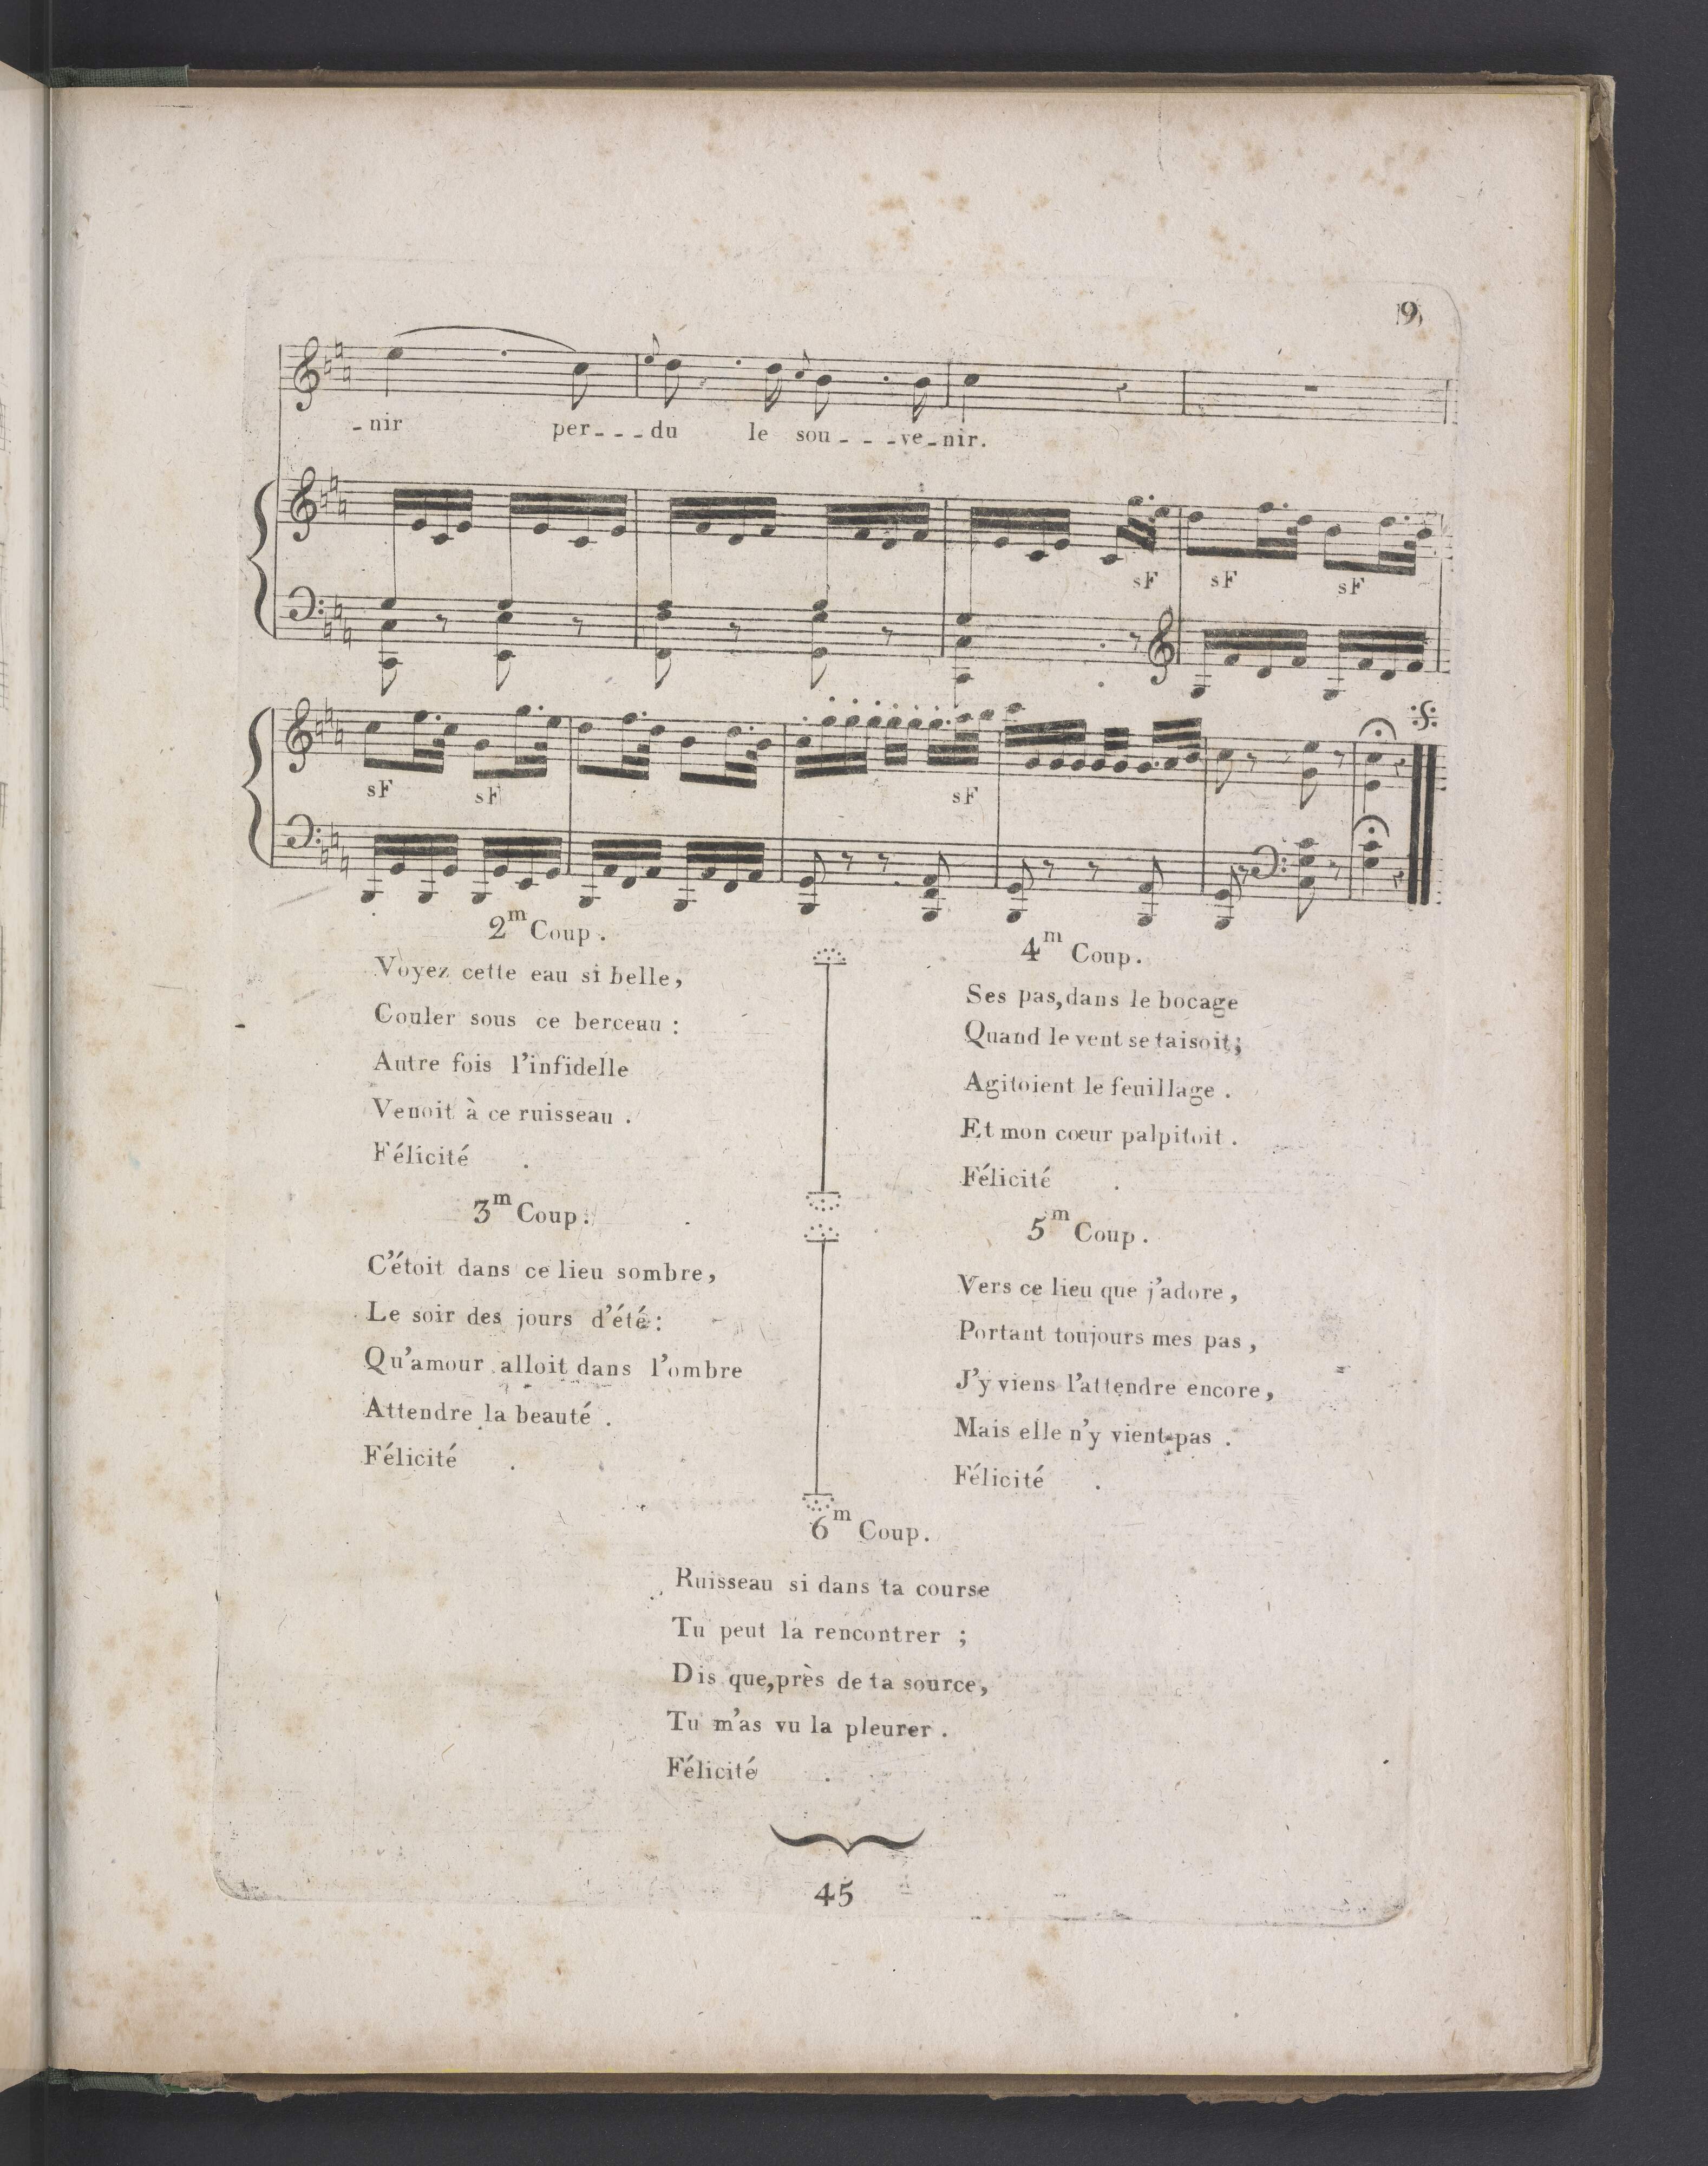 9
-nir per---du le sou---ve-nir.
sF sF sF
sF sF sF
2m Coup.
Voyez cette eau si belle,
Couler sous ce berceau :
Autre fois l'infidelle
Venoit à ce ruisseau .
Félicité .
3m Coup.
C'étoit dans ce lieu sombre,
Le soir des jours d'été :
Qu'amour alloit dans l'ombre
Attendre la beauté .
Félicité .
4m Coup.
Ses pas, dans le bocage
Quand le vent se taisoit;
Agitoient le feuillage .
Et mon cœur palpitoit .
Félicité .
5m Coup.
Vers ce lieu que j'adore ,
Portant toujours mes pas ,
J'y viens l'attendre encore ,
Mais elle n'y vient pas .
Félicité .
6m Coup.
Ruisseau si dans ta course
Tu peut la rencontrer ;
Dis que, près de ta source,
Tu m'as vu la pleurer .
Félicité .
45